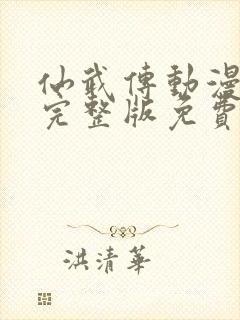 仙武傳動漫
完整版免費
洪清華